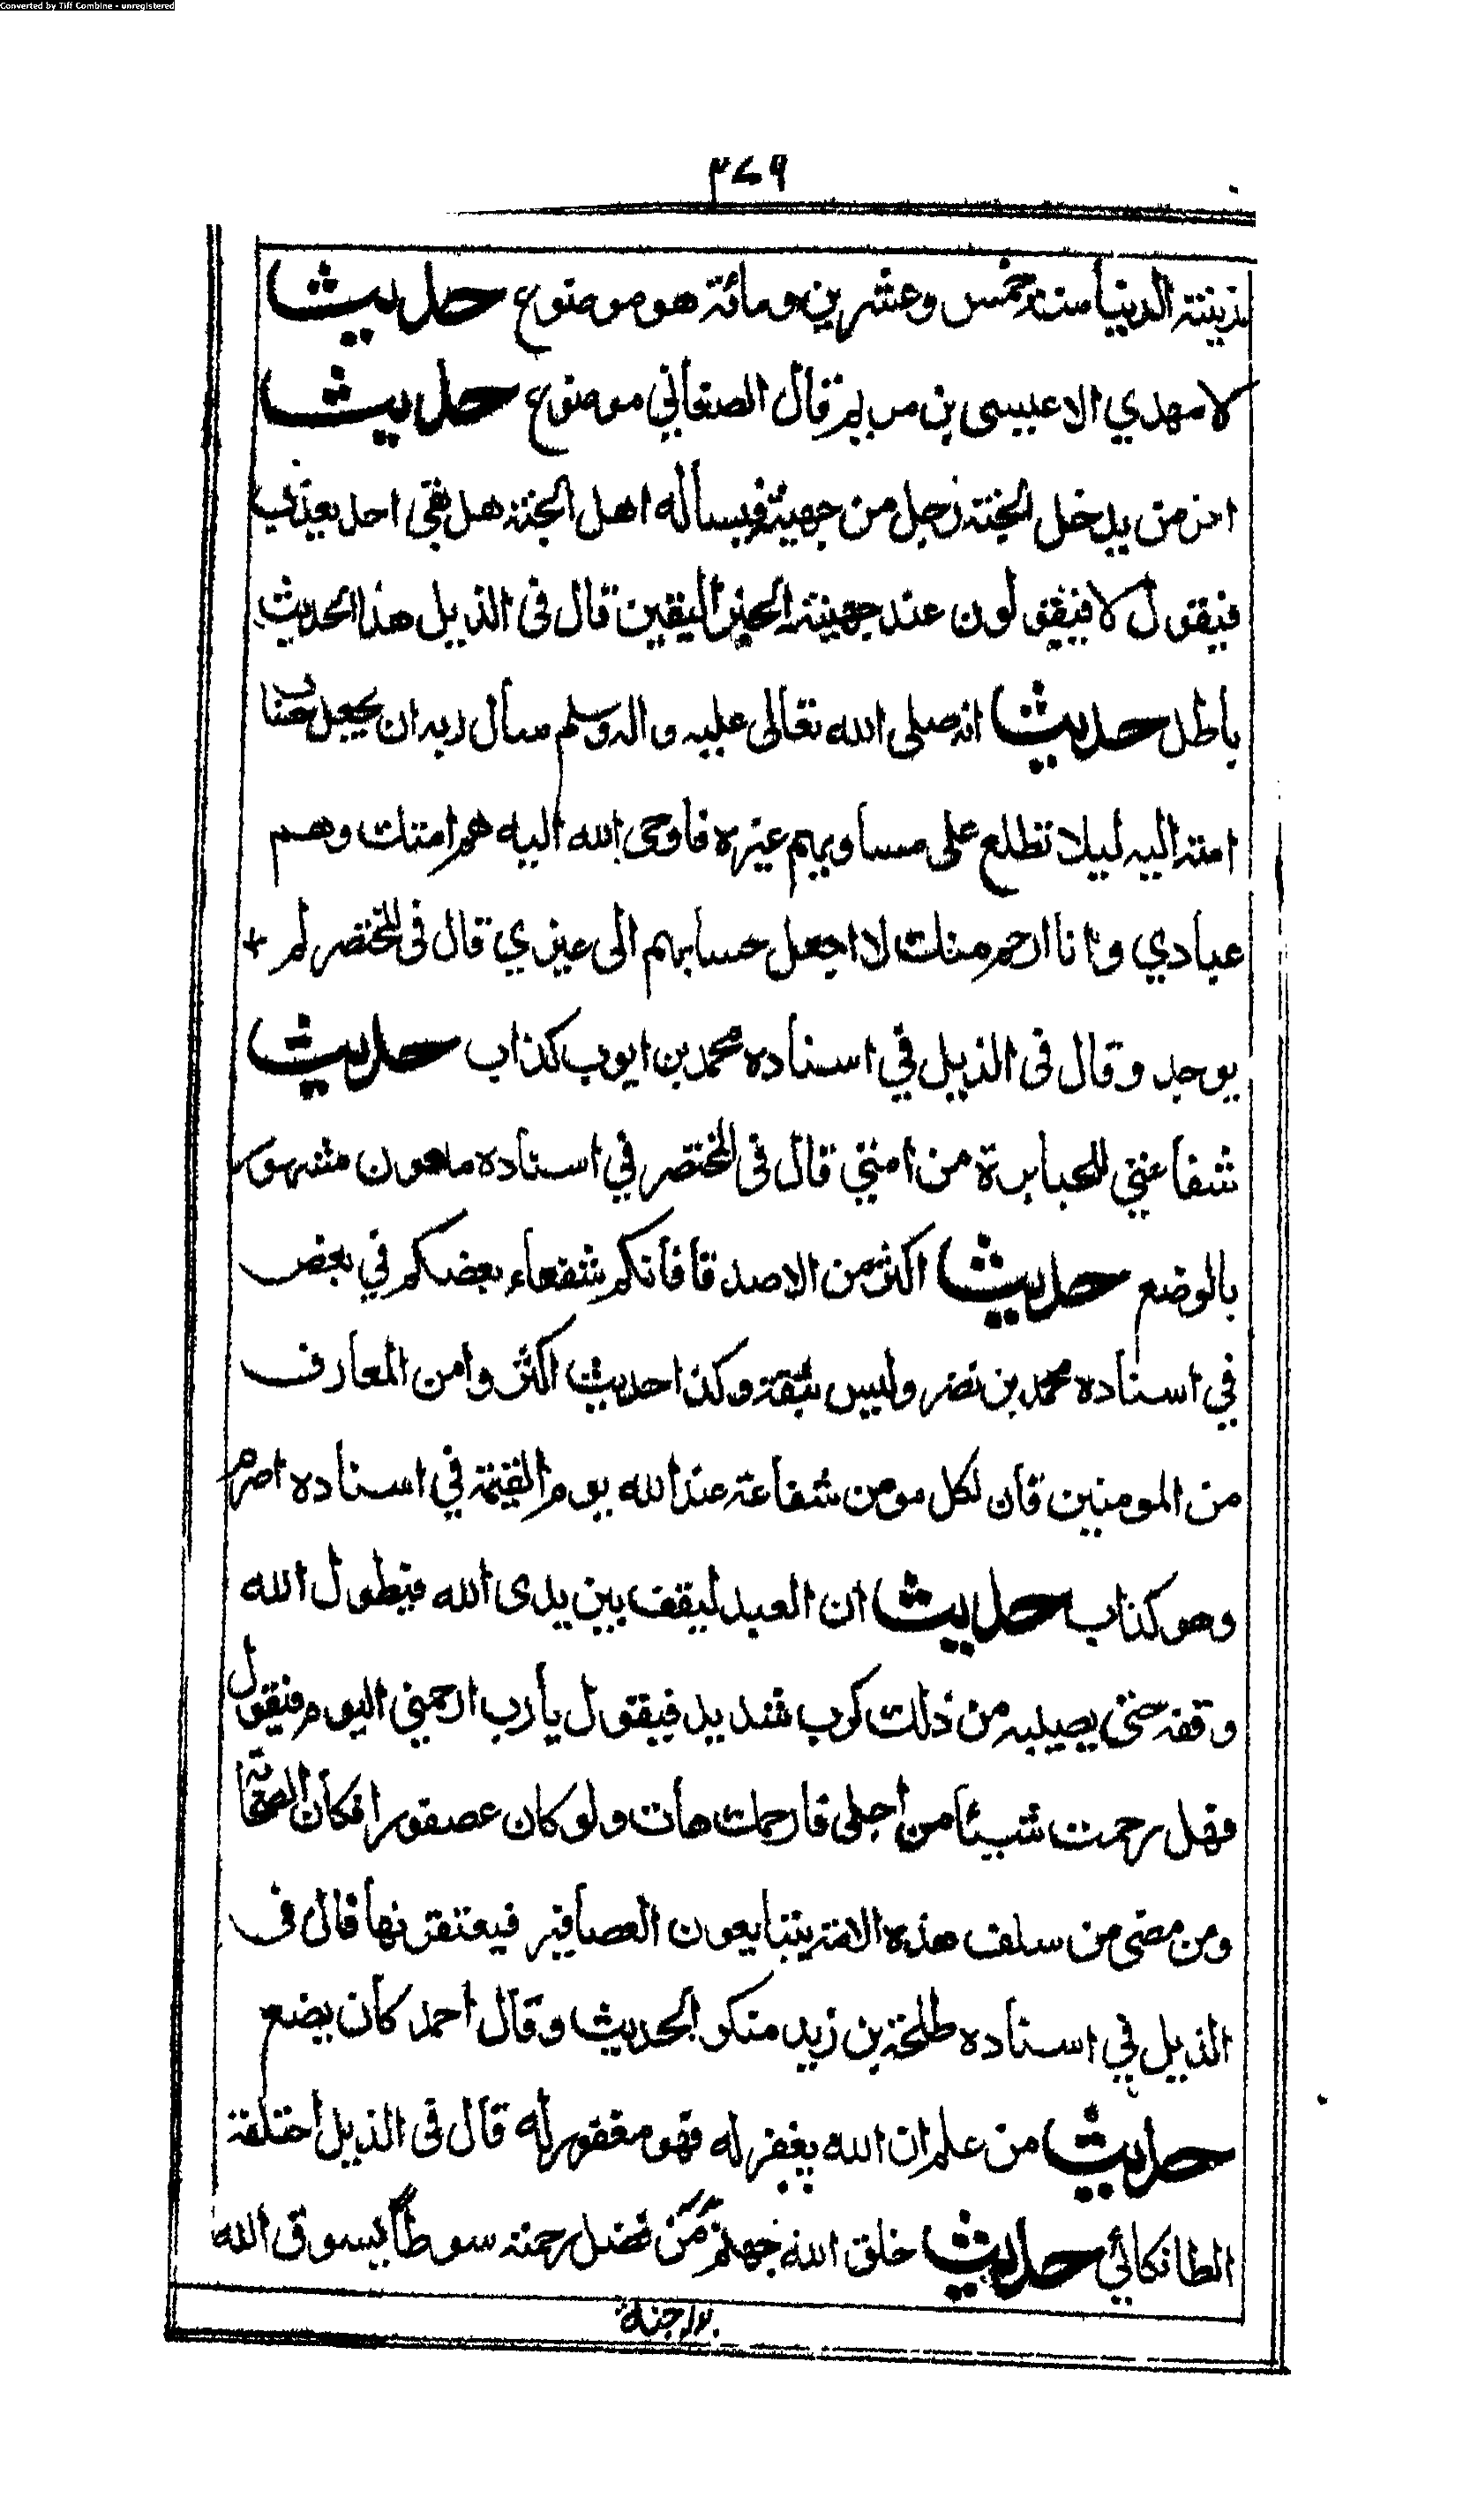 Converted by Tiff Combine - unregistered
٣٧٩
زينة الدنيا سنة خمس وعشرين ومائة هو موضوع حديث
لا مهدي الا عيسى بن مريم قال الصغاني موضوع حديث
اخر من يدخل الجنة رجل من جهينة فيسأله اهل الجنة هل بقي احد يعذب
فيقول لا فيقولون عند جهينة الخبر اليقين قال فى الذيل هذا الحديث
باطل حديث انه صلى الله تعالى عليه واله وسلم سأل ربه ان يجعل حساب
امته اليه ليلا تطلع على مساويهم غيره فاوحى الله اليه هم امتك وهم
عبادي وانا ارحم منك لا اجعل حسابهم الى غيري قال فى المختصر لم +
يوجد وقال فى الذيل في اسناده محمد بن ايوب كذاب حديث
شفاعتي للجبابرة من امتي قال فى المختصر في اسناده مامون مشهور
بالوضع حديث اكثر من الاصدقا فانكم شفعاء بعضكم في بعض
في اسناده محمد بن نضر وليس بثقة وكذا حديث اكثروا من المعارف
من المومنين فان لكل مومن شفاعة عند الله يوم القيمة في اسناده اصرم
وهو كذاب حديث ان العبد ليقف بين يدى الله فيطول الله
وقفه حتى يصيبه من ذلك كرب شديد فيقول يارب ارحمني اليوم فيقول
فهل رحمت شيئا من اجلى فارحمك هات ولو كان عصفورا فكان الصحابة
ومن مضى من سلف هذه الامة يتبايعون العصافير فيعتقونها قال فى
الذيل في اسناده طلحة بن زيد منكر الحديث وقال احمد كان يضع
حديث من علم ان الله يغفر له فهو مغفور له قال فى الذيل اختلقه
الطائكاني حديث خلق الله جهنم من فضل رحمته سوطا يسوق الله
به الى جنة